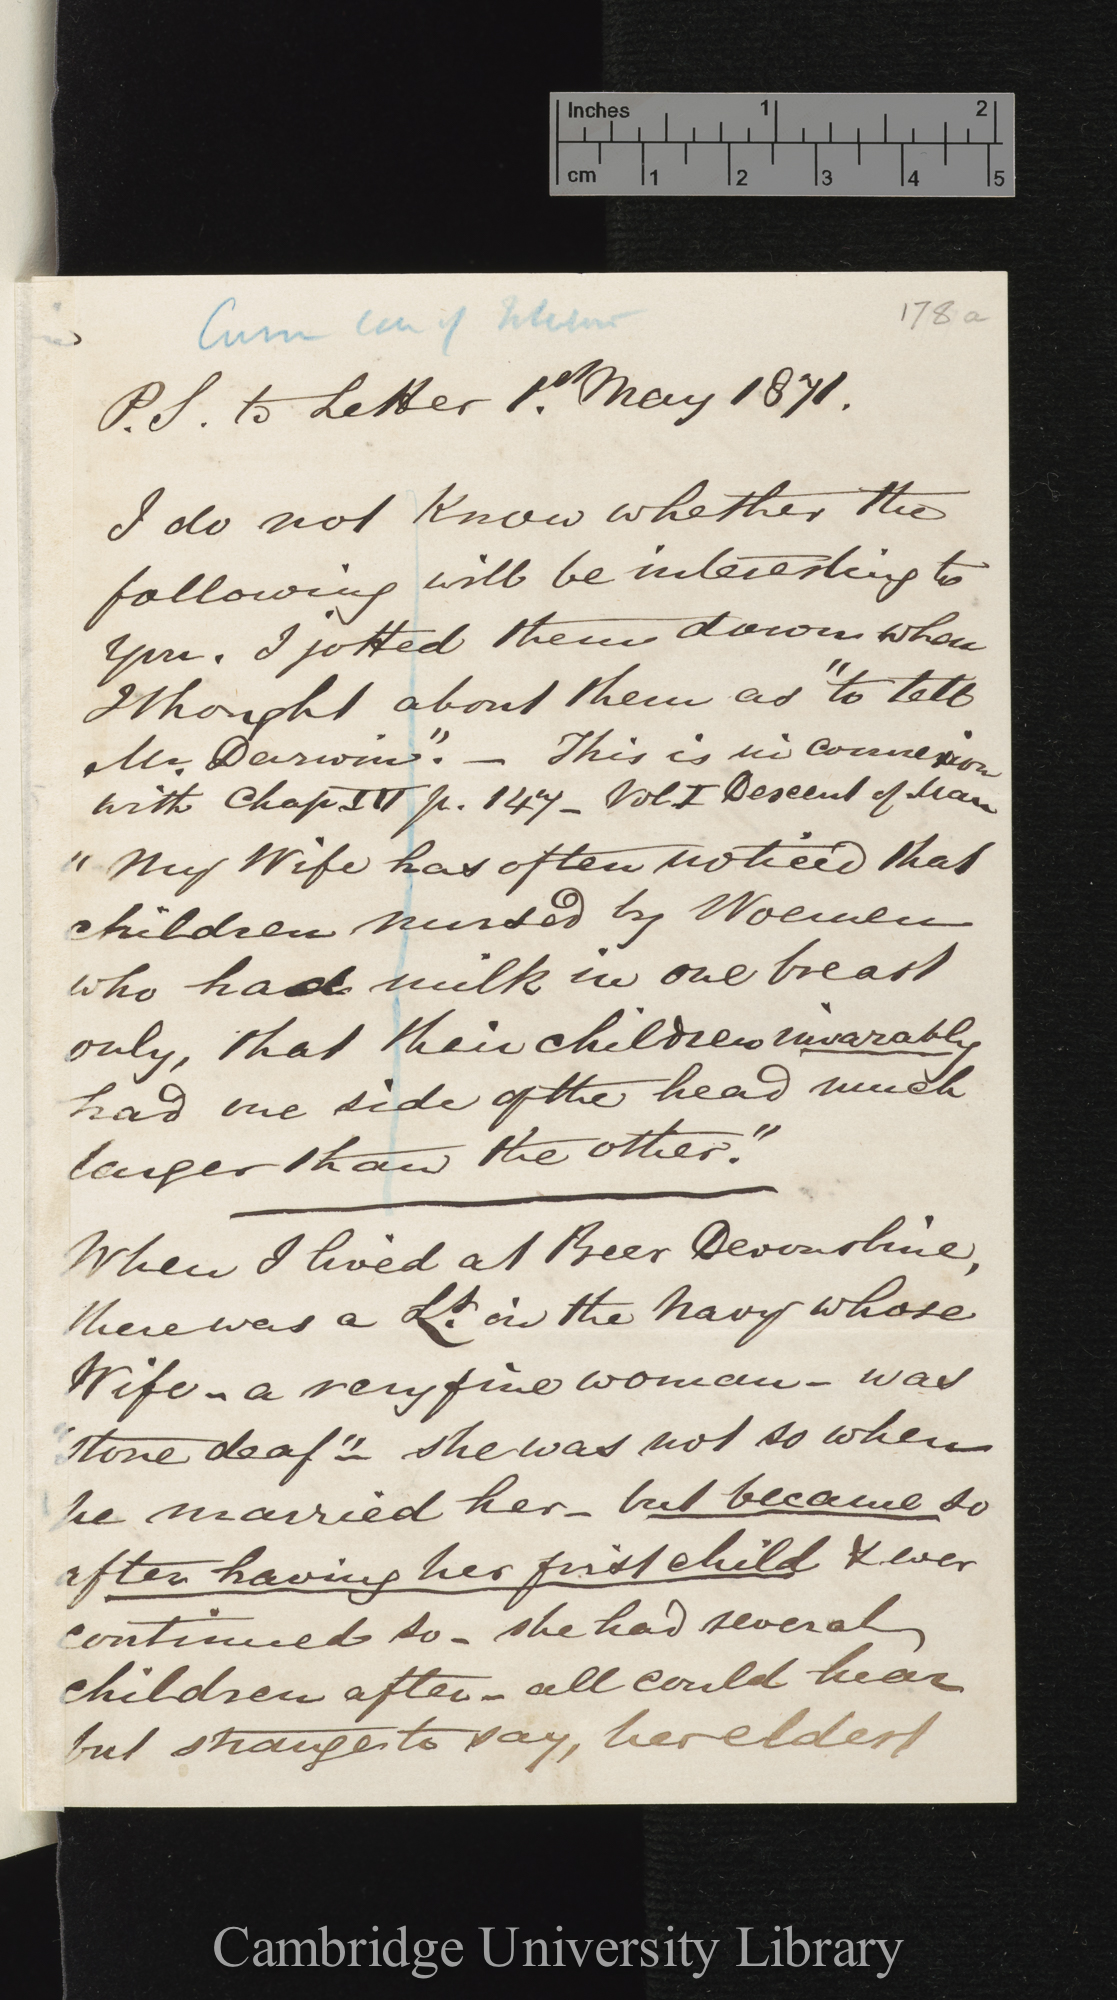 Inches 1 2
cm 1 2 3 4 5
178a
P.S. to Letter 1st. May 1871.
I do not know whether the
following will be interesting to
you. I jotted them down when
I thought about them as "to tell
Mr. Darwin". — This is in connexion
with Chap IV p. 147 — Vol. I Descent of Man
"My Wife has often noticed that
children nursed by Woemen
who had milk in one breast
only, that their children invarably
had one side of the head much
larger than the other."
When I lived at Beer Devonshire,
there was a Lt. in the Navy whose
Wife – a very fine woman – was
"stone deaf" – she was not so when
he married her – but became so
after having her first child & ever
continued so – she had several
children after – all could hear
but strange to say, her eldest
Cambridge University Library